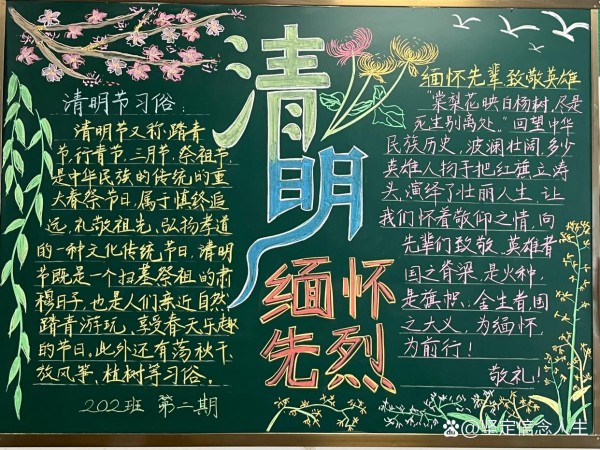 清明节习俗：
清明节又称踏青
节、行青节、三月节、祭祖节
是中华民族的传统的重
大春祭节日，属于慎终追
远、礼敬祖先、弘扬孝道
的一种文化传统节日，清明
节既是一个扫墓祭祖的肃
穆日子，也是人们亲近自然
踏青游玩、享受春天乐趣
的节日，此外还有荡秋千、
放风筝、植树等习俗。
202班 第二期
清
明
缅怀
先烈
缅怀先辈致敬英雄
“棠梨花映白杨树，尽是
死生别离处。”回望中华
民族历史，波澜壮阔，多少
英雄人物手把红旗立涛
头，演绎了壮丽人生，让
我们怀着敬仰之情，向
先辈们致敬，英雄者
国之脊梁，是火种，
是旗帜，舍生者国
之大义，为缅怀，
为前行！
敬礼！
@坚定信念人生